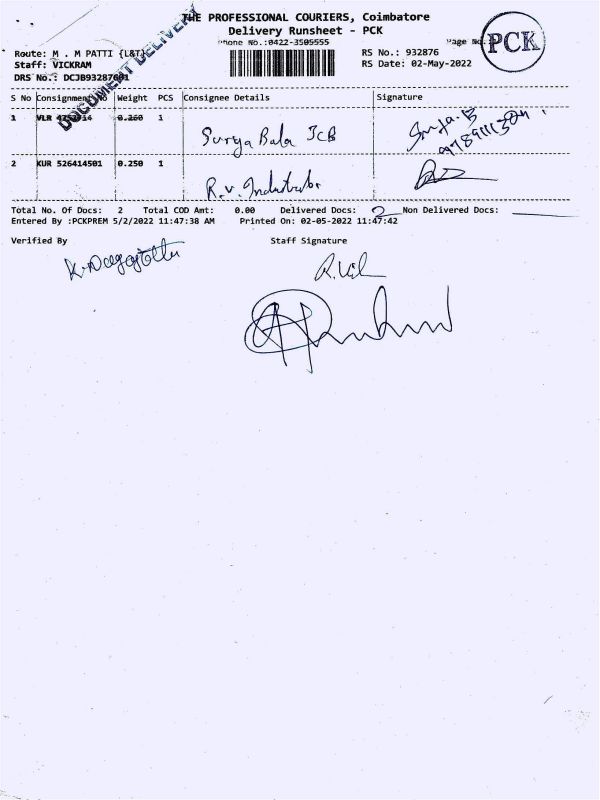 THE PROFESSIONAL COURIERS, Coimbatore
Delivery Runsheet - PCK
Phone No.:0422-3505555
Page No.:
PCK
Route: M . M PATTI {L&T}
RS No.: 932876
Staff: VICKRAM
RS Date: 02-May-2022
DRS No.: DCJB93287601
DOCUMENT DELIVERY
S No Consignment No Weight PCS Consignee Details Signature
1 VLR 0.260 1
Surya Bala JCB
Surya.B
2 KUR 526414501 0.250 1
R.V. Industrials
Total No. Of Docs: 2 Total COD Amt: 0.00 Delivered Docs: 2 Non Delivered Docs:
Entered By :PCKPREM 5/2/2022 11:47:38 AM Printed On: 02-05-2022 11:47:42
Verified By Staff Signature